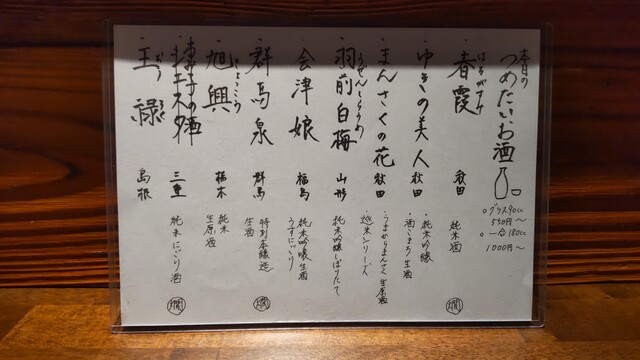 本日の
つめたいお酒
○グラス90cc
550円〜
○一合180cc
1000円〜
・春霞 秋田 純米酒
はるがすみ
燗
・ゆきの美人 秋田
・純米吟醸
・酒こまち生酒
・まんさくの花 秋田
・うまからまんさく生原酒
・巡米シリーズ
・羽前白梅 山形 純米吟醸しぼりたて
うぜんしらうめ
・会津娘 福島
純米吟醸生酒
うすにごり
・群馬泉 群馬
特別本醸造
生酒
燗
・旭興 栃木
きょくこう
純米
生原酒
三重 純米にごり酒
燗
・王禄 島根
おうろく